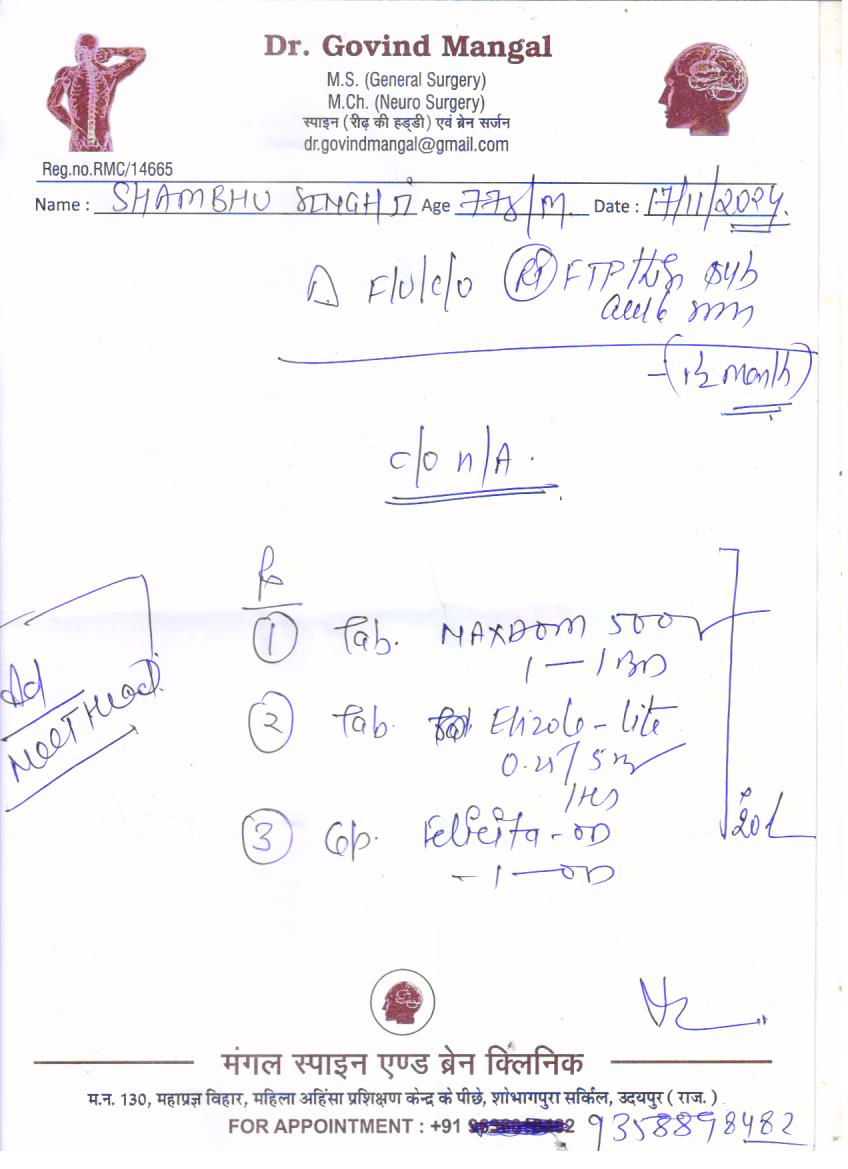 Dr. Govind Mangal
M.S. (General Surgery)
M.Ch. (Neuro Surgery)
स्पाइन (रीढ़ की हड्डी) एवं ब्रेन सर्जन
dr.govindmangal@gmail.com
Reg.no.RMC/14665
Name : SHAMBHU SINGH Age 77y/M Date : 17/11/2024.
F/U/C/O Rt FTP
1½ Month
C/O N/A.
Rx
1 Tab. NAXDOM 500
1 — 1 BD
2 Tab. Etizola-lite
0.25/5
1 HS
3 Cap. Felicita-OD
- 1 - OD
20 d
Ad
मंगल स्पाइन एण्ड ब्रेन क्लिनिक
म.न. 130, महाप्रज्ञ विहार, महिला अहिंसा प्रशिक्षण केन्द्र के पीछे, शोभागपुरा सर्किल, उदयपुर ( राज. )
FOR APPOINTMENT : +91 9358898482